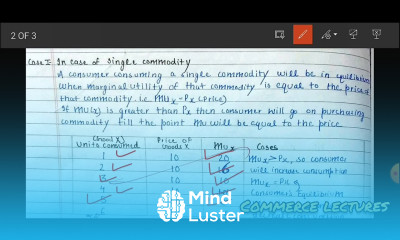 2 OF 3
Case I In case of Single commodity
A consumer consuming a single commodity will be in equilibrium
when marginal utility of that commodity is equal to the price of
that commodity. i.e. MUx = Px (Price)
If MU(x) is greater than Px then consumer will go on purchasing
commodity fill the point MU will be equal to the price
Good X) Price of MUx Cases
Units consumed Goods X
1 10 20 MUx > Px, so consumer
2 10 16 will increase consumption
3 10 10 MUx = Px
4 10 Consumer's equilibrium
5
Mind
Luster
COMMERCE LECTURES